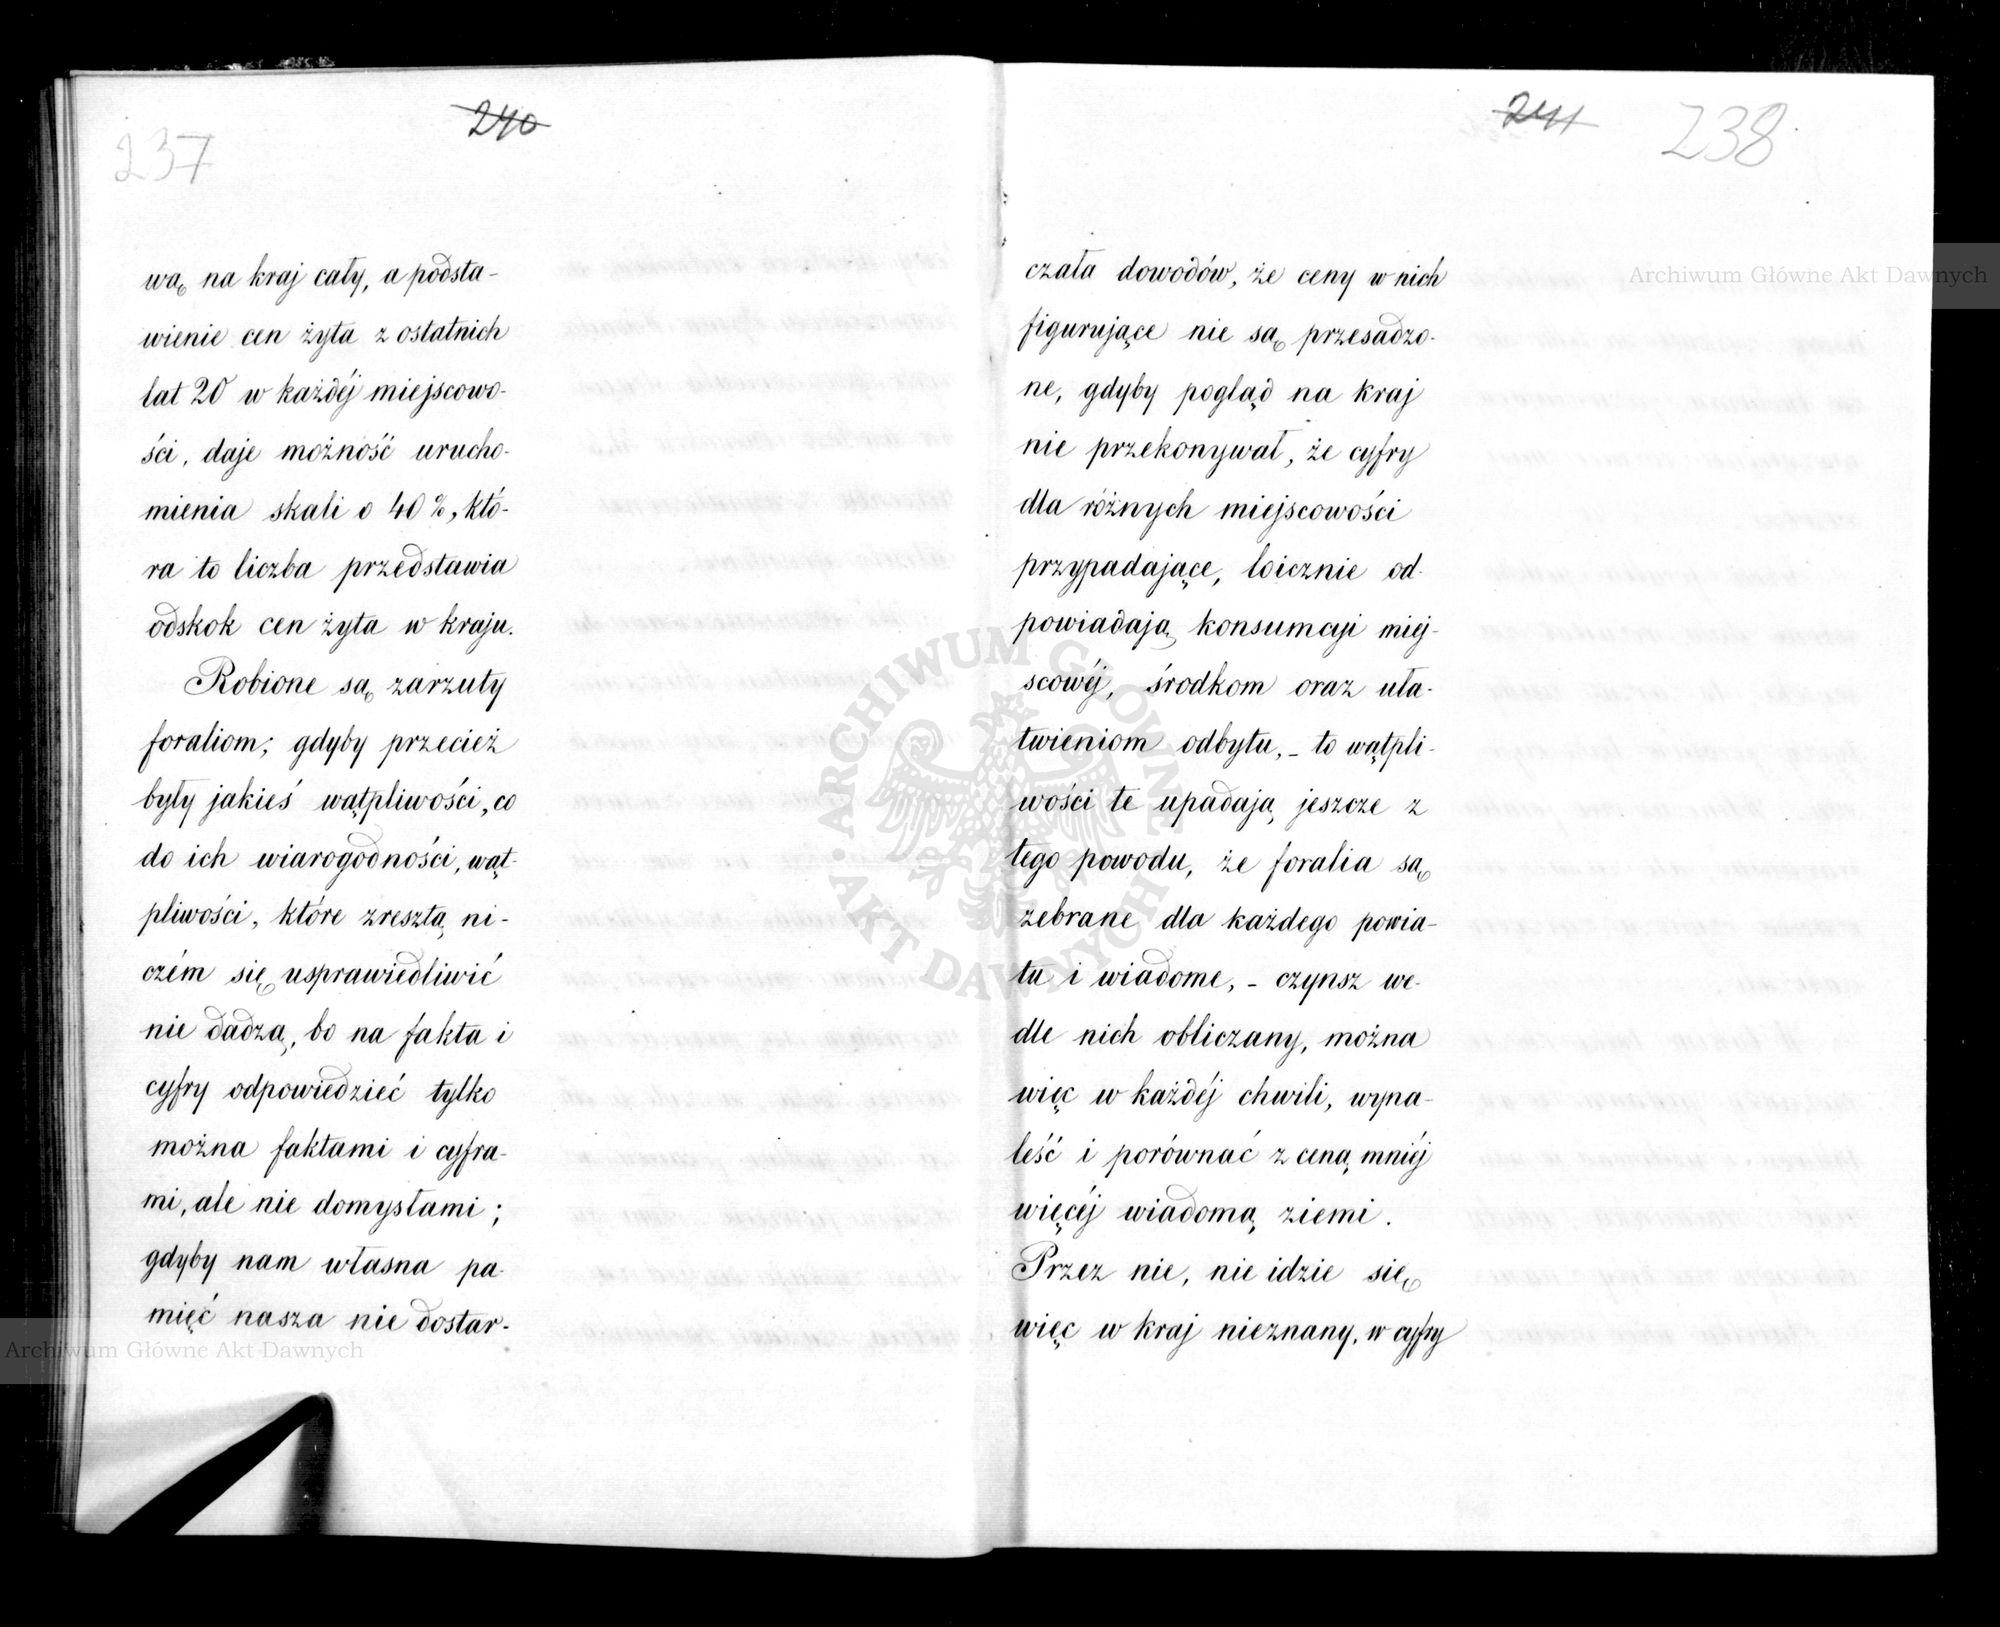 237
240
wą na kraj cały, a podsta-
wienie cen żyta z ostatnich
lat 20 w każdéj miejscowo-
ści, daje możność urucho-
mienia skali o 40 %, któ-
ra to liczba przedstawia
odskok cen żyta w kraju.
Robione są zarzuty
foraliom; gdyby przecież
były jakieś wątpliwości, co
do ich wiarogodności, wąt-
pliwości, które zresztą ni-
czém się usprawiedliwić
nie dadzą, bo na fakta i
cyfry odpowiedzieć tylko
można faktami i cyfra-
mi, ale nie domysłami;
gdyby nam własna pa-
mięć nasza nie dostar-
241
238
czała dowodów, że ceny w nich
figurujące nie są przesadzo-
ne, gdyby pogląd na kraj
nie przekonywał, że cyfry
dla różnych miejscowości
przypadające, loicznie od-
powiadają konsumcyi miej-
scowéj, środkom oraz uła-
twieniom odbytu, - to wątpli-
wości te upadają jeszcze z
tego powodu, że foralia są
zebrane dla każdego powia-
tu i wiadome, - czynsz we-
dle nich obliczany, można
więc w każdéj chwili, wyna-
leść i porównać z ceną mniéj
więcéj wiadomą ziemi.
Przez nie, nie idzie się
więc w kraj nieznany, w cyfry
Archiwum Główne Akt Dawnych
ARCHIWUM GŁÓWNE AKT DAWNYCH
Archiwum Główne Akt Dawnych